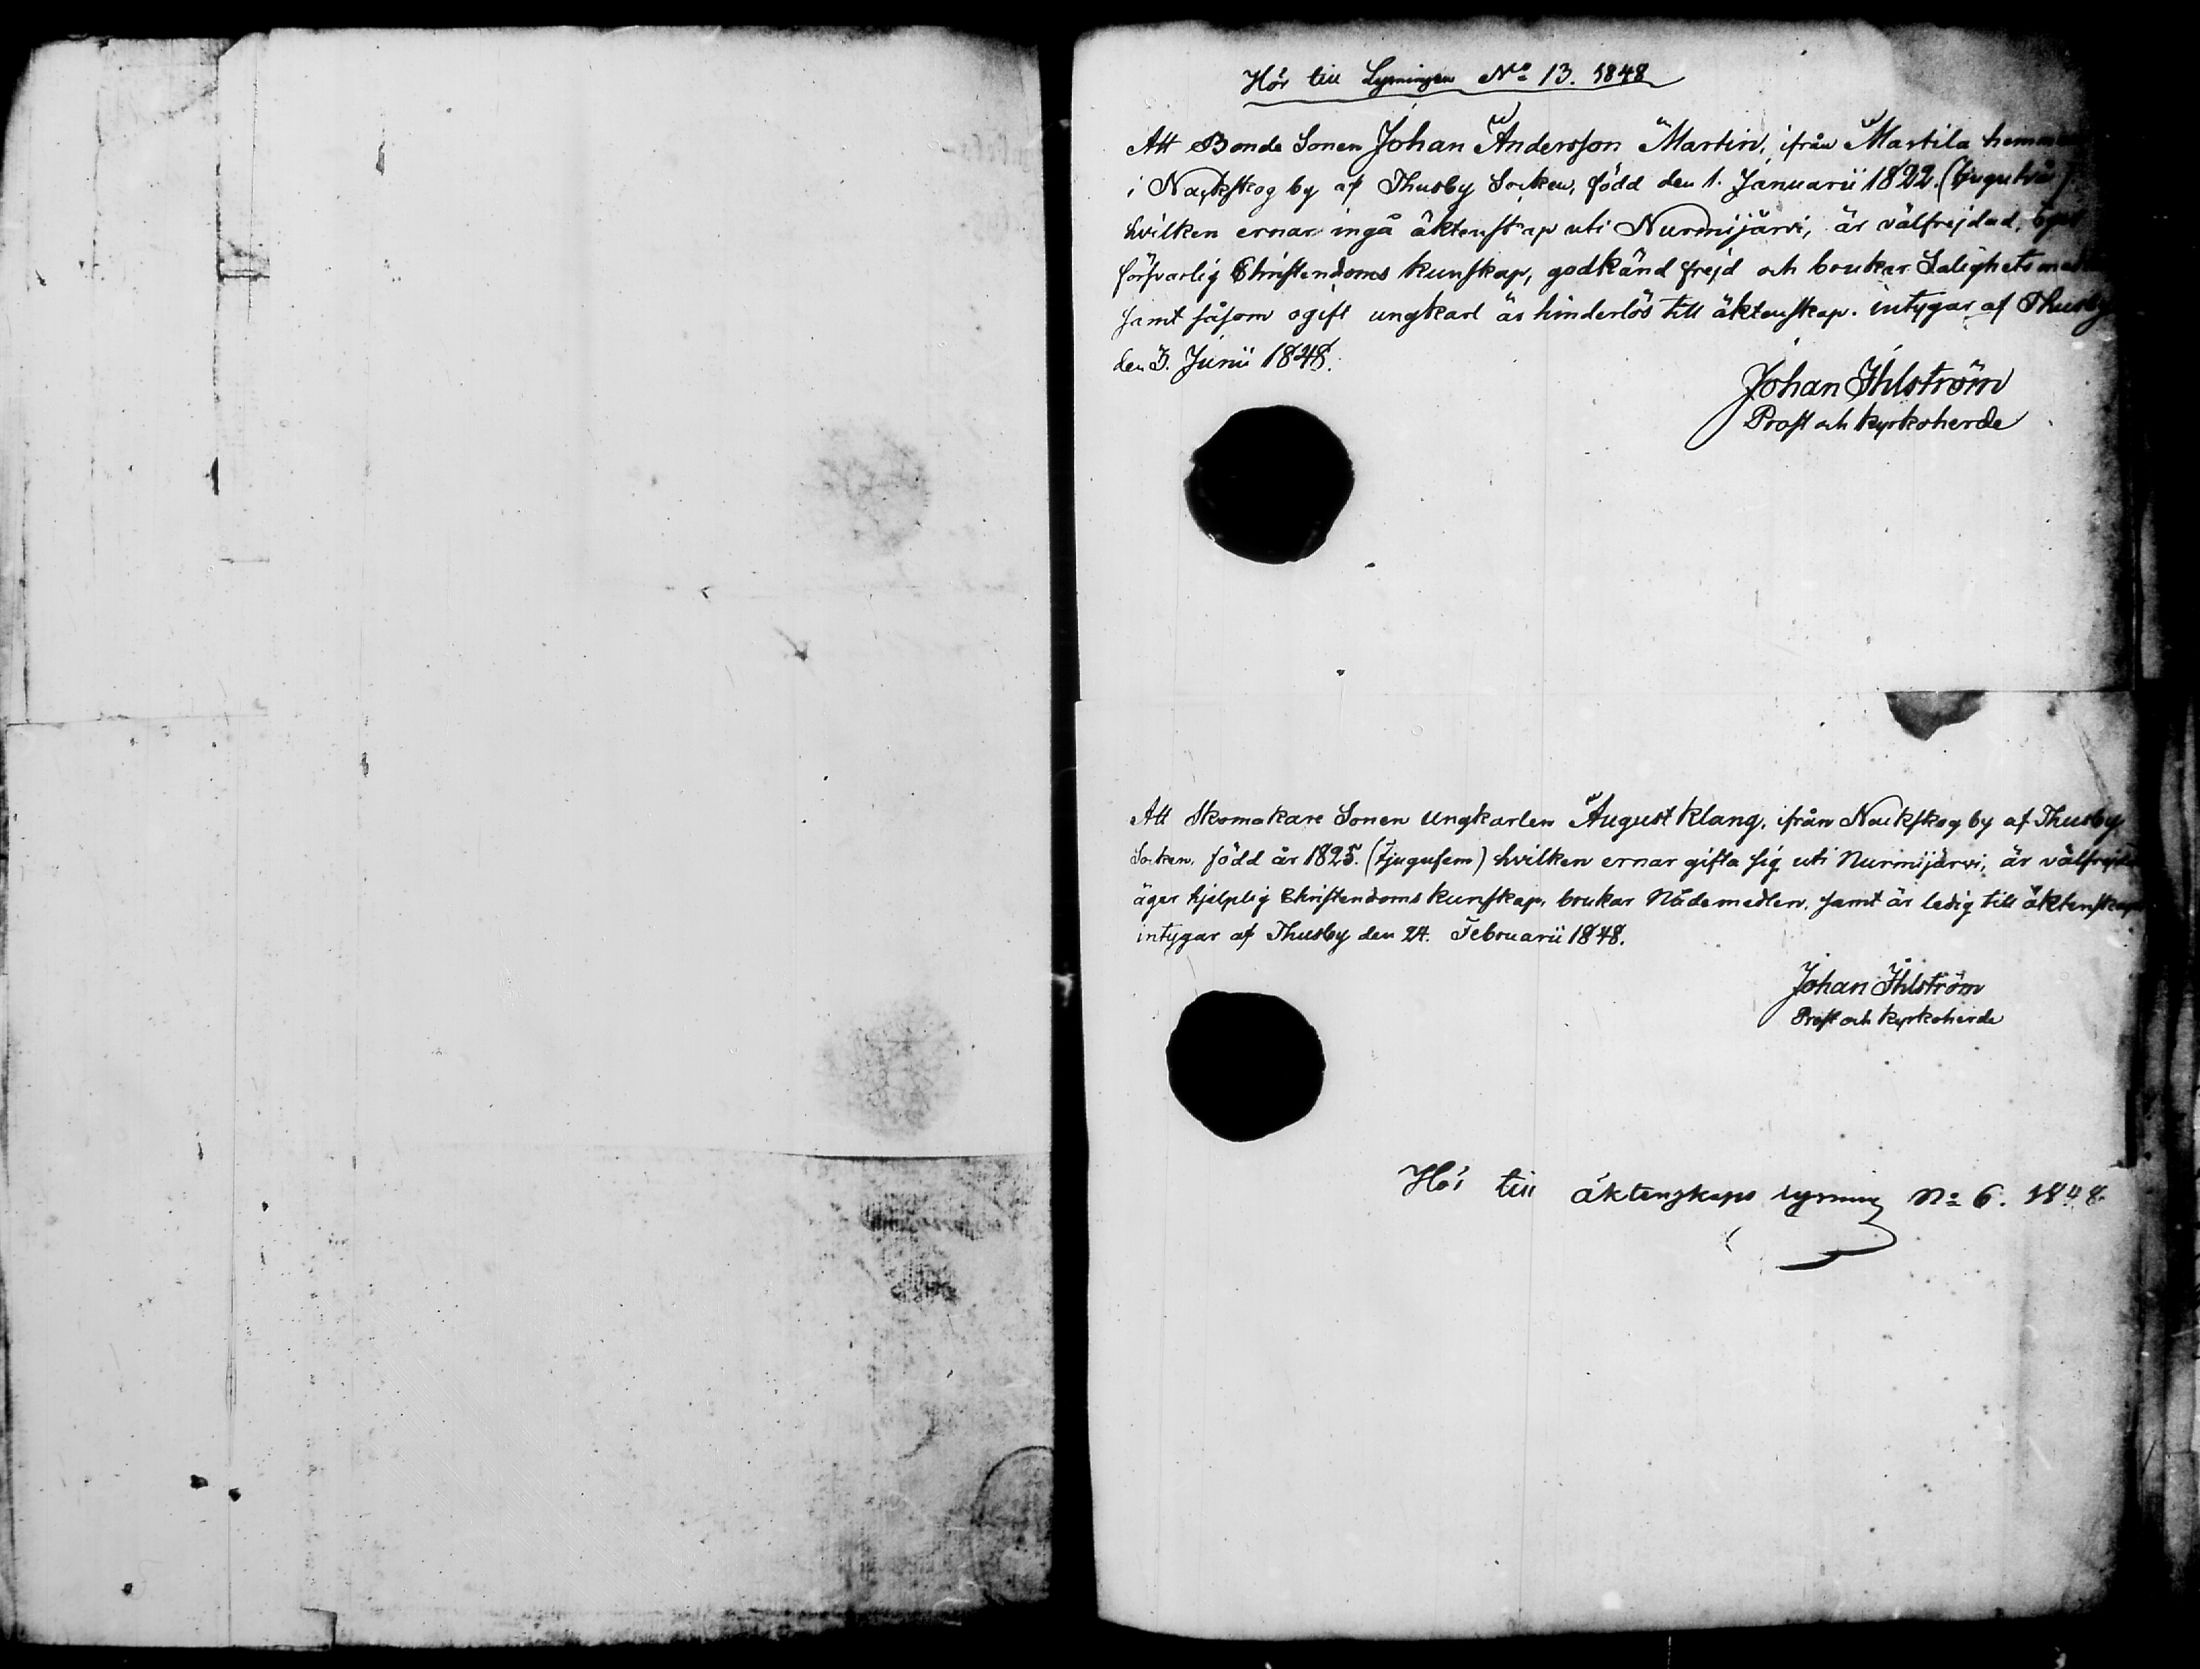 Hör till Lysningen No 13. 1848
Att Bonde Sonen Johan Andersson Martin, ifrån Martila hemman
i Nackskog by af Thusby Socken, född den 1. Januarii 1822. (tjugutvå)
hvilken ernar ingå äktenskap uti Nurmijärvi, är välfrejdad, eger
försvarlig Christendoms kunskap, godkänd frejd och brukar Salighets
samt såsom ogift ungkarl är hinderlös till äktenskap. intygar af Thusby
den 3. Junii 1848.
Johan Ihlström
Prost och kyrkoherde
Att Skomakare Sonen Ungkarlen August Klang, ifrån Nackskog by af Thusby
Socken, född år 1825. (tjugufem) hvilken ernar gifta sig uti Nurmijärvi, är välfrejdad
äger hjelplig Christendoms kunskap, brukar Nådemedlen, samt är ledig till äktenskap
intygar af Thusby den 24. Februarii 1848.
Johan Ihlström
Prost och kyrkoherde
Hör till äktenskaps lysning No 6. 1848.